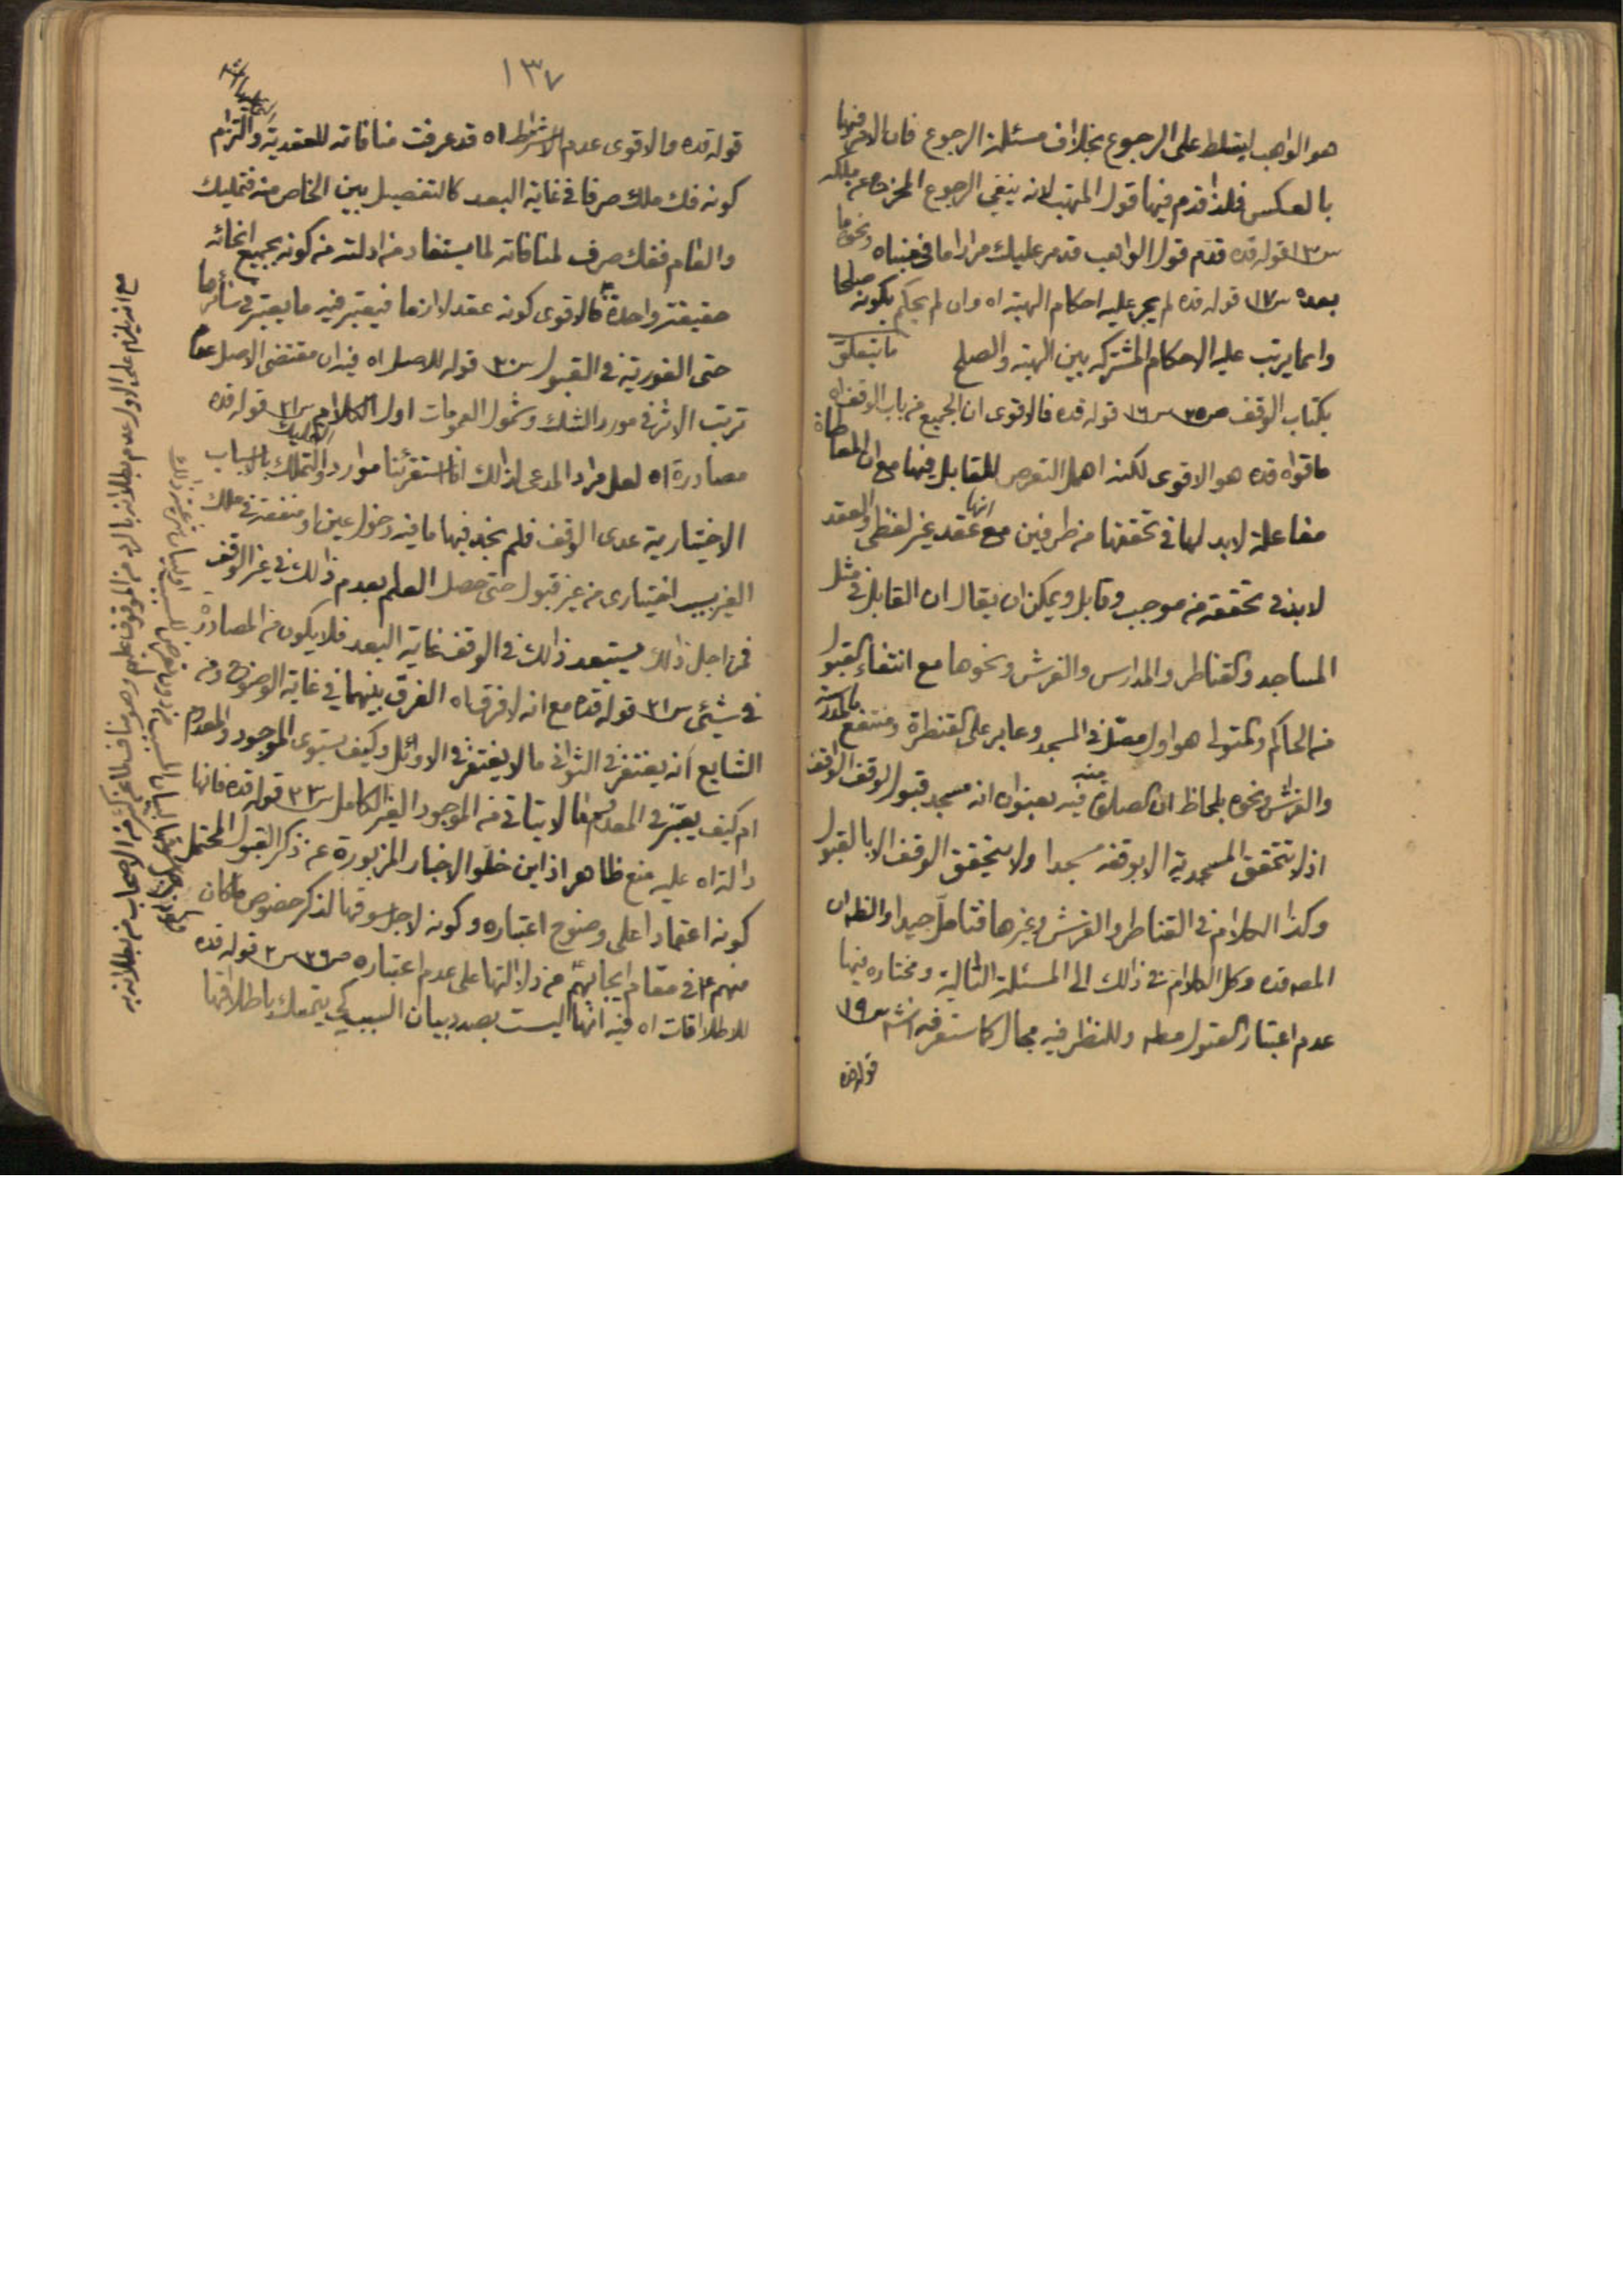 هو الواهب ليتسلط على الرجوع بخلاف مسئلة الرجوع فان الامر فيها
بالعكس فلذا قدم فيها قول المتهب لانه ينفي الرجوع المخرج عن ملكه
س١٣ قوله قده قدم قول الواهب قد مر عليك مرارا ما في مبناه ونحوه ما
بعده س١٧ قوله قده لم يجر عليه احكام الهبة اه وان لم يحكم بكونه صلحا
وانما يرتب عليه الاحكام المشتركه بين الهبة والصلح ما يتعلق
بكتاب الوقف ص٢٥ س١٦ قوله قده فالاقوى ان الجميع من باب الوقف اه
ما قواه قده هو الاقوى لكنه اهمل التعرض للقابل فيها مع ان المعاطاة
مفاعلة لابد لها في تحققها من طرفين مع انها عقد غير لفظي والعقد
لابد في تحققه من موجب وقابل ويمكن ان يقال ان القابل في مثل
المساجد والقناطر والمدارس والفرش ونحوها مع انتفاء القبول
من الحاكم والمتولي هو اول مصل في المسجد وعابر على القنطرة ومنتفع بالمدرسة
والفرش ونحوه بلحاظ ان الصلوة فيه بعنوان انه مسجد قبول لوقف الواقف
اذ لا تتحقق المسجدية الا بوقفه مسجدا ولا يتحقق الوقف الا بالقبول
وكذا الكلام في القناطر والفرش وغيرها فتامل جيدا والظ ان
المص قده وكل الكلام في ذلك الى المسئلة التالية ومختاره فيها
عدم اعتبار القبول مطه وللنظر فيه مجال كما ستعرفه انش س١٩
قوله قده
١٣٧
قوله قده والاقوى عدم الاشتراط اه قد عرفت منافاته للعقدية والتزام
كونه فك ملك صرفا في غاية البعد كالتفصيل بين الخاص منه فتمليك
والعام ففك صرف لمنافاته لما يستفاد من ادلته من كونه بجميع انحائه
حقيقة واحدة فالاقوى كونه عقدا لازما فيعتبر فيه ما يعتبر في سائرها
حتى الفورية في القبول س٢٠ قوله للاصل اه فيه ان مقتضى الاصل عدم
ترتب الاثر في مورد الشك وشمول العمومات اول الكلام س٢١ قوله قده
مصادرة اه لعل مراد المدعي لذلك انا استقرئنا موارد التمليك والتملك بالاسباب
الاختيارية عدى الوقف فلم نجد فيها ما فيه دخول عين او منفعة في ملك
الغير بسبب اختياري من غير قبول حتى حصل العلم بعدم ذلك في غير الوقف
فمن اجل ذلك يستبعد ذلك في الوقف غاية البعد فلا يكون من المصادرة
في شيئ س٢١ قوله قده مع انه لا فرق اه الفرق بينهما في غاية الوضوح ومن
الشايع انه يغتفر في الثواني ما لا يغتفر في الاوائل وكيف يستوي الموجود والمعدوم
ام كيف يعتبر في المعدوم ما لا يتاتى من الموجود الغير الكامل س٢٣ قوله قده فانها
دالة اه عليه منع ظاهر اذ اين خلو الاخبار المزبورة عن ذكر القبول المحتمل
كونه اعتمادا على وضوح اعتباره وكونه لاجل سوقها لذكر خصوص ما كان
منهم ع في مقام ايجابهم من دلالتها على عدم اعتباره ص٢٦ س٢ قوله قده
للاطلاقات اه فيه انها ليست بصدد بيان السبب كي يتمسك باطلاقها